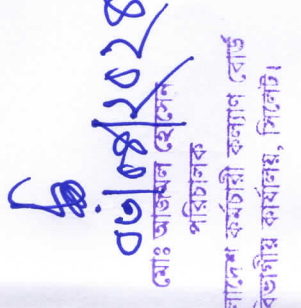 ০৬/০৪/২০২৪
মোঃ আজমল হোসেন
পরিচালক
লাদেশ কর্মচারী কল্যাণ বোর্ড
বিভাগীয় কার্যালয়, সিলেট।